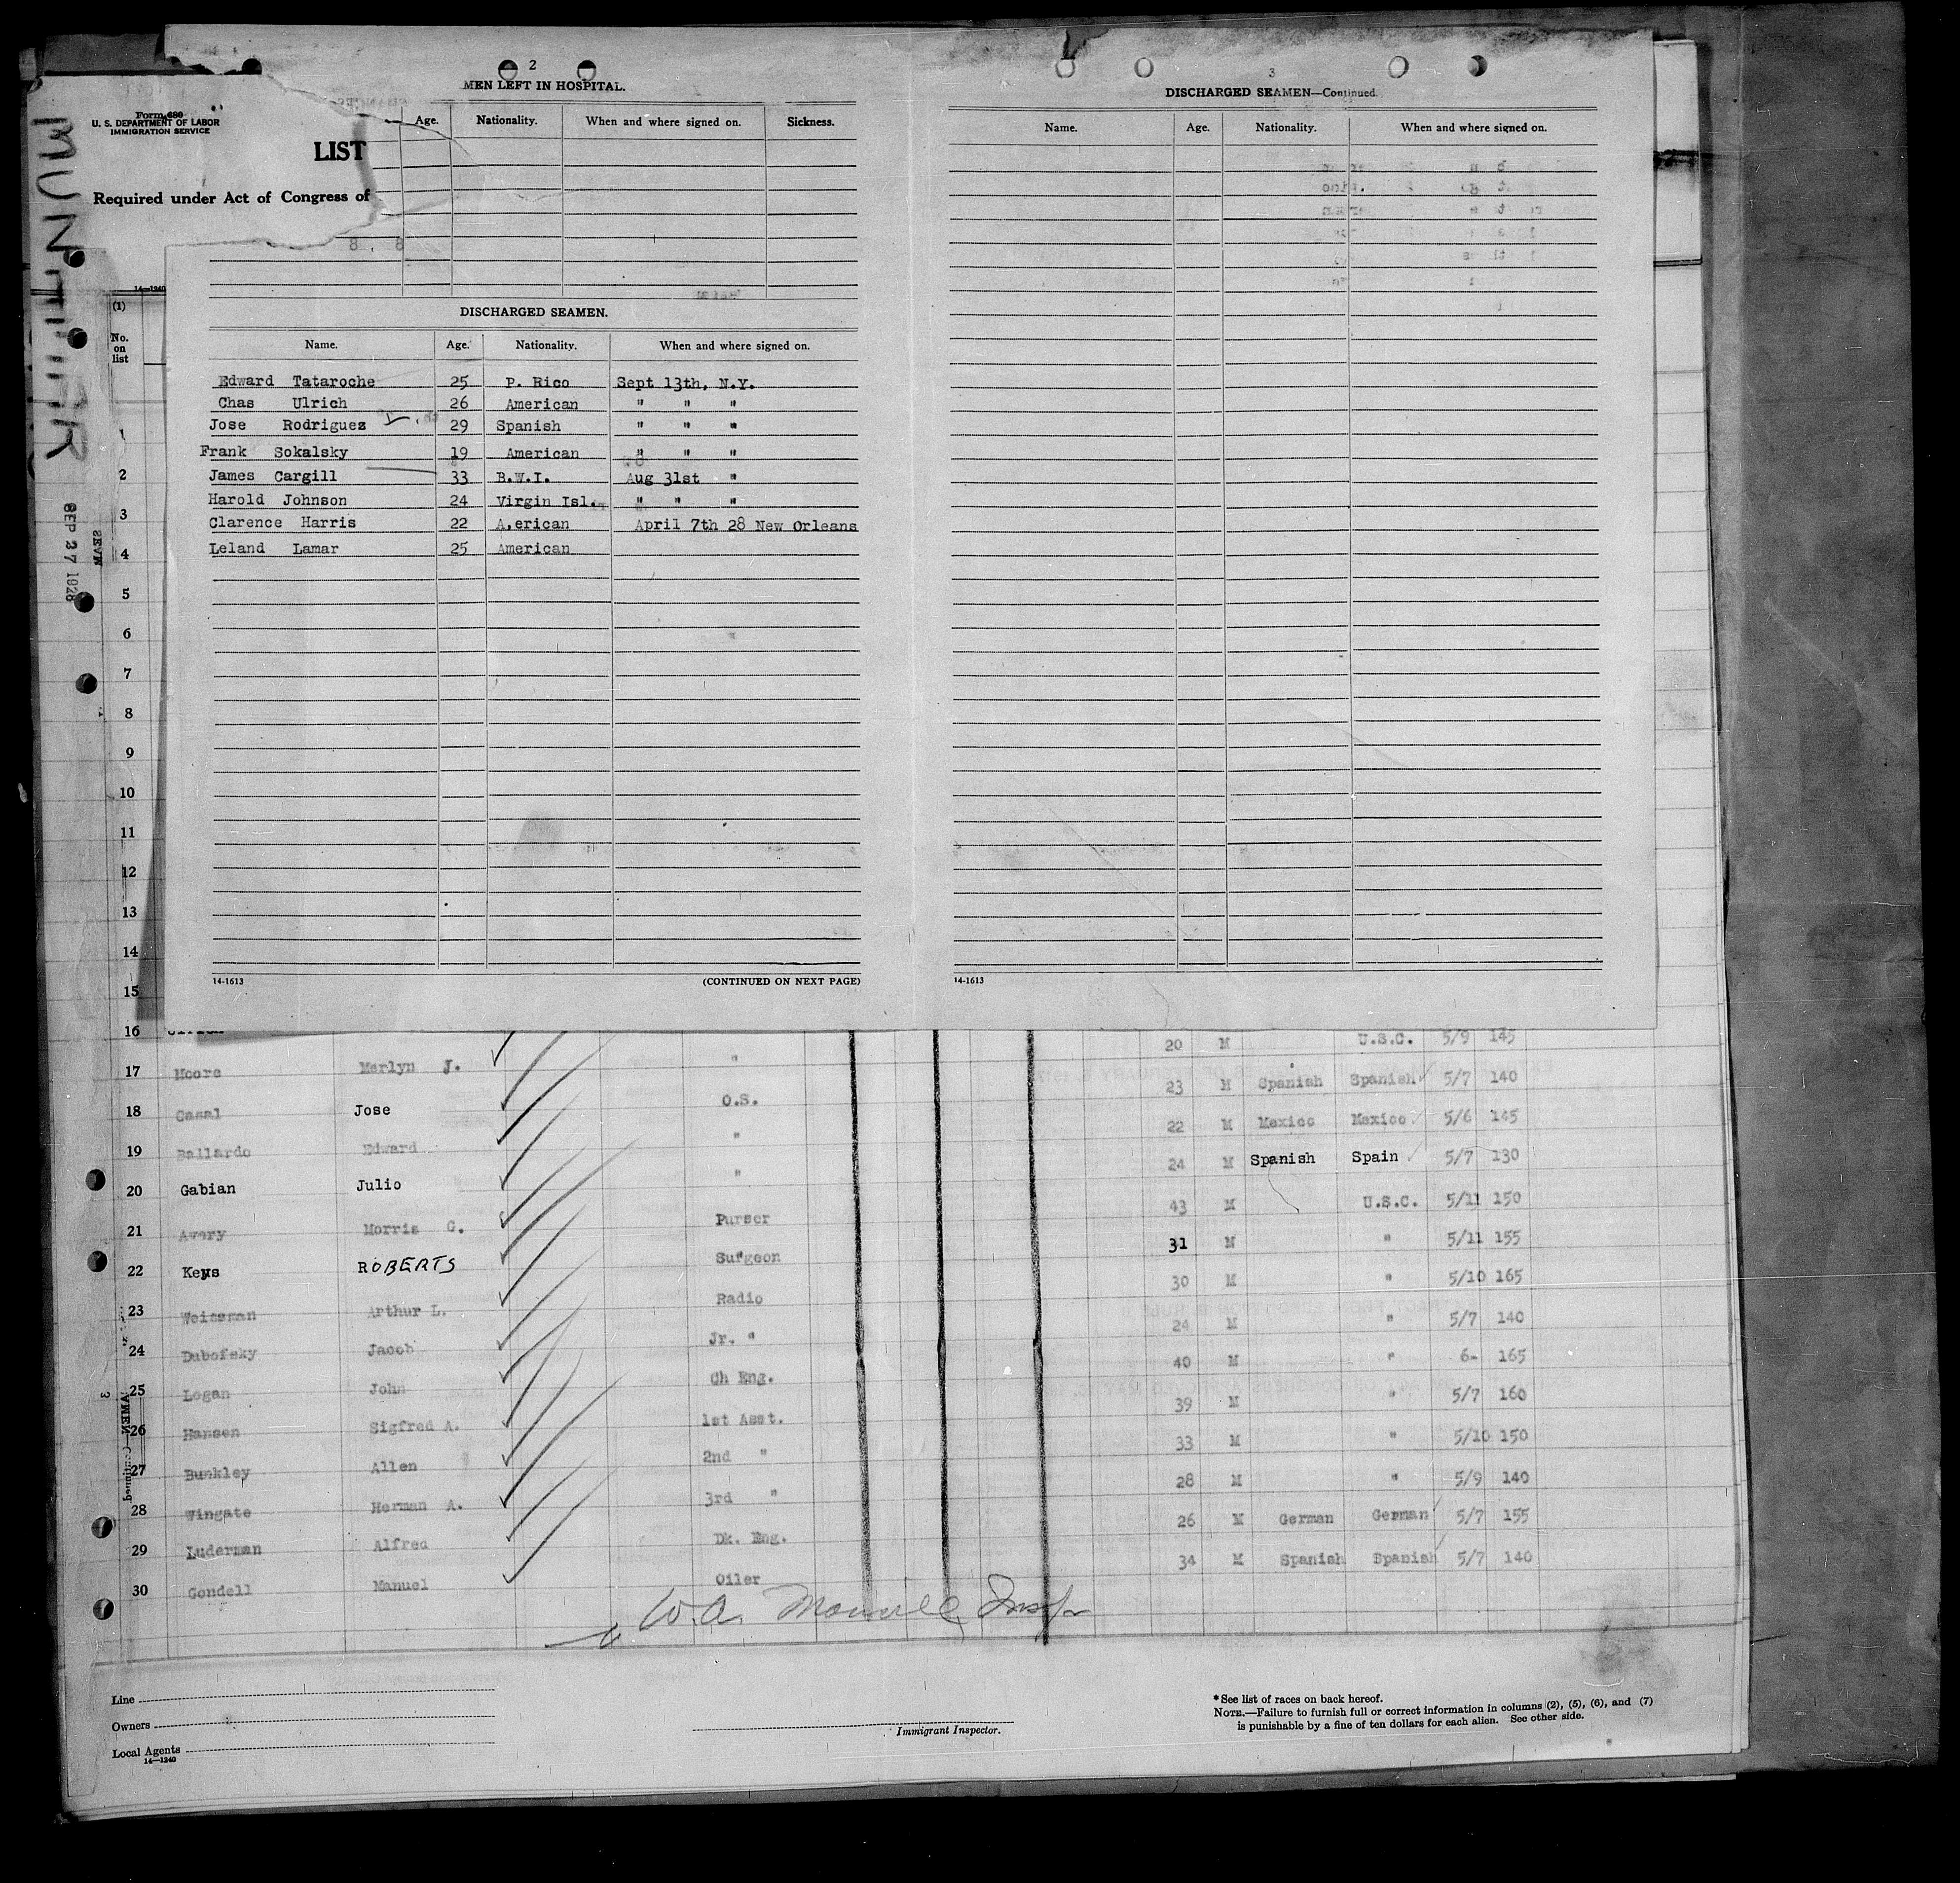 Form 680
U. S. DEPARTMENT OF LABOR
IMMIGRATION SERVICE
LIST
Required under Act of Congress of
SEP 27 1928
2
MEN LEFT IN HOSPITAL.
Age. Nationality. When and where signed on. Sickness.
DISCHARGED SEAMEN.
Name. Age. Nationality. When and where signed on.
Edward Tataroche 25 P. Rico Sept 13th, N.Y.
Chas Ulrich 26 American " " "
Jose Rodriguez 29 Spanish " " "
Frank Sokalsky 19 American " " "
James Cargill 33 B.W.I. Aug 31st "
Harold Johnson 24 Virgin Isl. " " "
Clarence Harris 22 A.erican April 7th 28 New Orleans
Leland Lamar 25 American
14-1613 (CONTINUED ON NEXT PAGE)
3
DISCHARGED SEAMEN—Continued.
Name. Age. Nationality. When and where signed on.
14-1613
14—1240
(1)
No.
on
list
1
2
3
4
5
6
7
8
9
10
11
12
13
14
15
16
17 Moore Merlyn J. " 20 M U.S.C. 5/9 145
18 Casal Jose O.S. 23 M Spanish Spanish 5/7 140
19 Ballardo Edward " 22 M Mexico Mexico 5/6 145
20 Gabian Julio " 24 M Spanish Spain 5/7 130
21 Avery Morris G. Purser 43 M U.S.C. 5/11 150
22 Keys ROBERTS Surgeon 31 M " 5/11 155
23 Weissman Arthur L. Radio 30 M " 5/10 165
24 Dubofsky Jacob Jr. " 24 M " 5/7 140
25 Logan John Ch Eng. 40 M " 6- 165
26 Hansen Sigfred A. 1st Asst. 39 M " 5/7 160
27 Bunkley Allen 2nd " 33 M " 5/10 150
28 Wingate Herman A. 3rd " 28 M " 5/9 140
29 Luderman Alfred Dk. Eng. 26 M German German 5/7 155
30 Gondell Manuel Oiler 34 M Spanish Spanish 5/7 140
W.A.
Line
Owners
Local Agents
14—1240
Immigrant Inspector.
*See list of races on back hereof.
NOTE.—Failure to furnish full or correct information in columns (2), (5), (6), and (7)
is punishable by a fine of ten dollars for each alien. See other side.